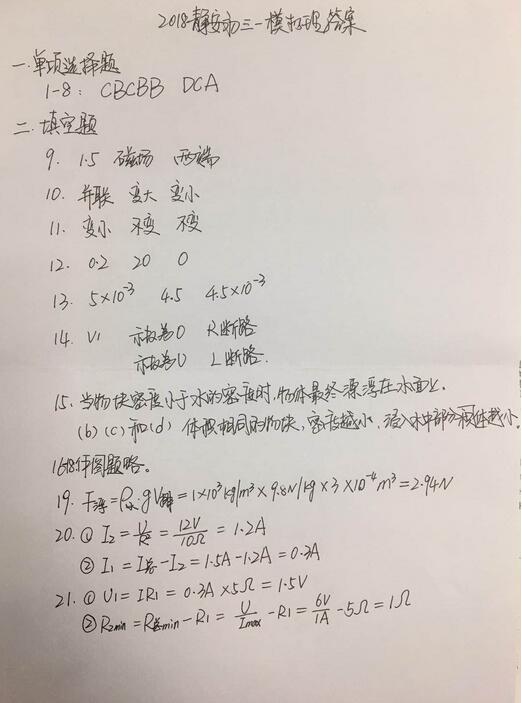 2018静安初三一模物理答案
一.单项选择题
1-8: CBCBB DCA
二.填空题
9. 1.5 磁场 两端
10. 并联 变大 变小
11. 变小 不变 不变
12. 0.2 20 0
13. 5×10⁻³ 4.5 4.5×10⁻³
14. V1 示数为0 R断路
示数为U L断路.
15. 当物块密度小于水的密度时,物体最终漂浮在水面上.
(b)(c)和(d) 体积相同的物块,密度越小,浸入水中部分体积越小.
16-18作图题略。
19. F浮=ρ水gV排=1×10³kg/m³×9.8N/kg×3×10⁻⁴m³=2.94N
20. ① I2=U/R=12V/10Ω=1.2A
② I1=I总-I2=1.5A-1.2A=0.3A
21. ① U1=IR1=0.3A×5Ω=1.5V
② R2min=R总min-R1=U/Imax-R1=6V/1A-5Ω=1Ω